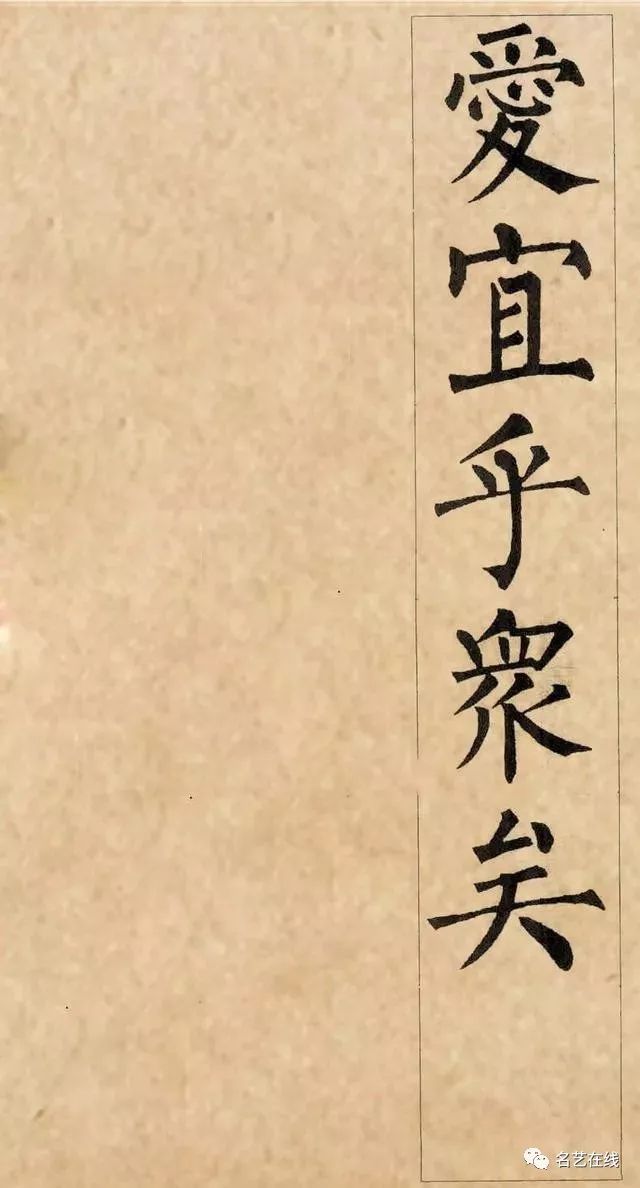 愛宜乎衆矣
名艺在线